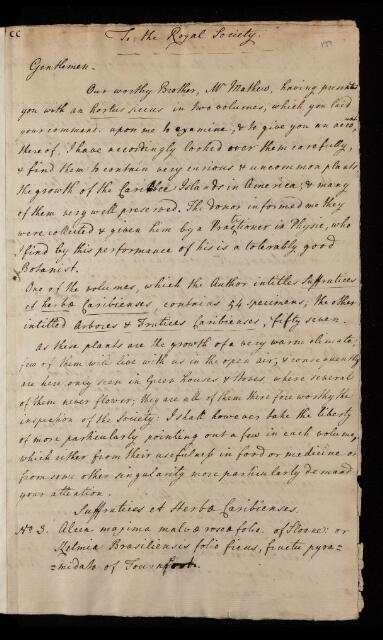 CC
To the Royal Society.
Gentlemen.
Our worthy Brother, Mr Mathew, having presented
you with an hortus siccus in two volumes, which you laid
your command upon me to examine, & to give you an acct.
thereof, I have accordingly looked over them carefully,
& find them to contain very curious & uncommon plants
the growth of the Caribbee Islands in America; & many
of them very well preserved. The donor informed me they
were collected & given him by a Practioner in Physic, who
I find by this performance of his is a tolerably good
Botanist.
One of the volumes, which the Author intitles Suffrutices
et herbæ Caribienses, contains 54 specimens, the other
intitled Arbores & Frutices Caribienses, fifty seven.
As these plants are the growth of a very warm climate,
few of them will live with us in the open air, & consequently
are here only seen in Green houses & stoves, where several
of them never flower; they are all of them therefore worthy the
inspection of the Society: I shall however take the liberty
of more particularly pointing out a few in each volume,
which either from their usefulness in food or medicine or
from some other singularity more particularly demand
your attention.
Suffrutices et Herbæ Caribienses.
No 3. Alcea maxima malvæ roseæ folio. of Sloane: or
Ketmia Brasiliensis folio ficus, fructu pyra=
=midato of Tournfort.